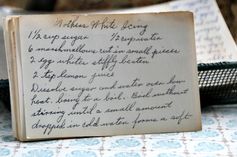 Mothers White Icing
1 1/2 cup sugar 1/2 cup water
6 marshmallows cut in small pieces
2 egg whites stiffly beaten
2 tsp lemon juice
Dissolve sugar and water over low
heat. Bring to a boil. Boil without
stirring until a small amount
dropped in cold water forms a soft